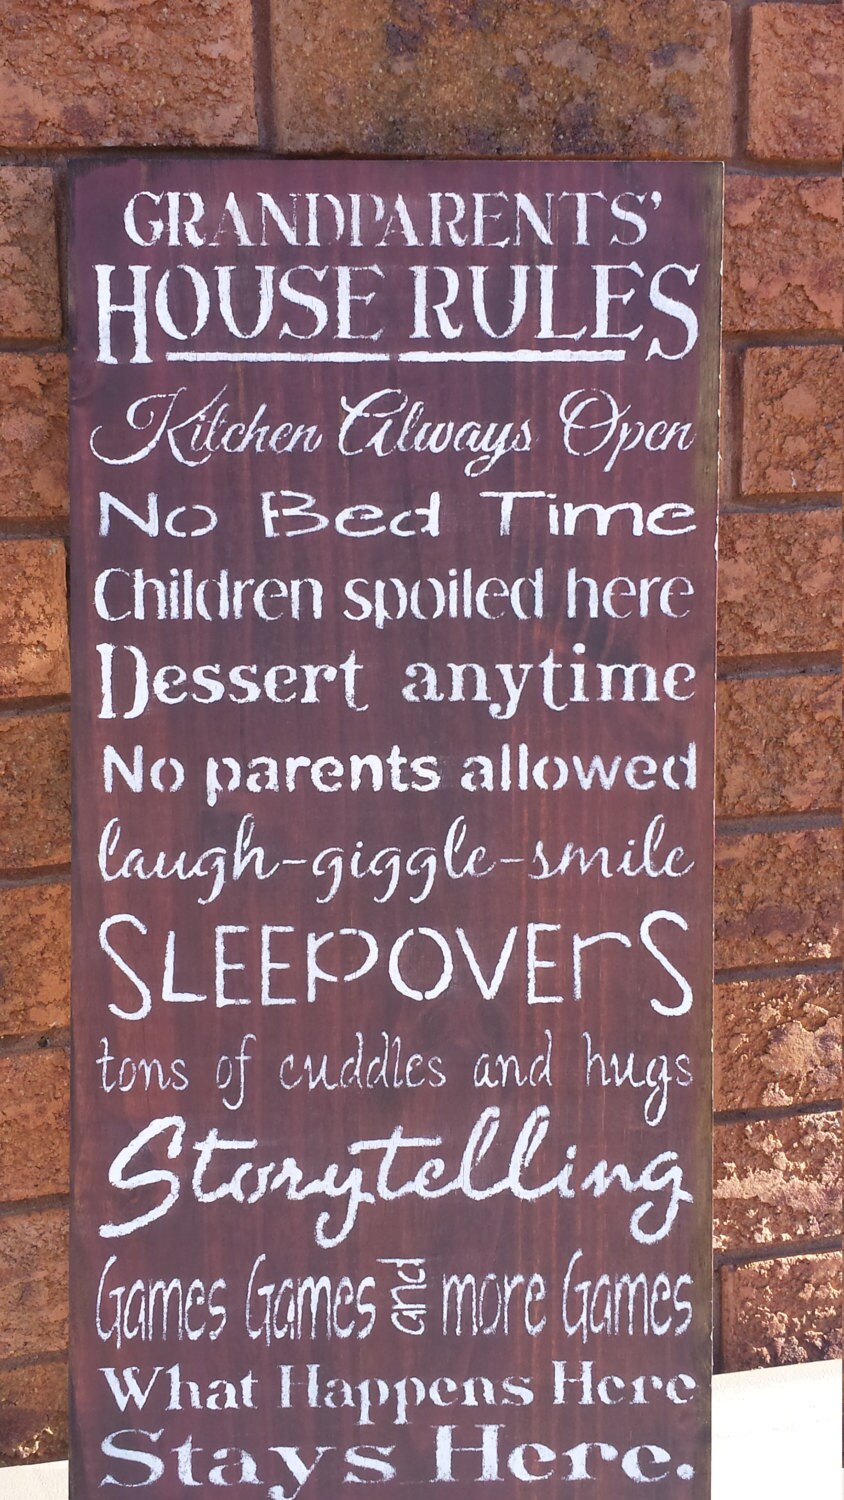 GRANDPARENTS'
HOUSE RULES
Kitchen Always Open
No Bed Time
Children spoiled here
Dessert anytime
No parents allowed
laugh-giggle-smile
SLEEPOVErS
tons of cuddles and hugs
Storytelling
Games Games and more Games
What Happens Here
Stays Here.